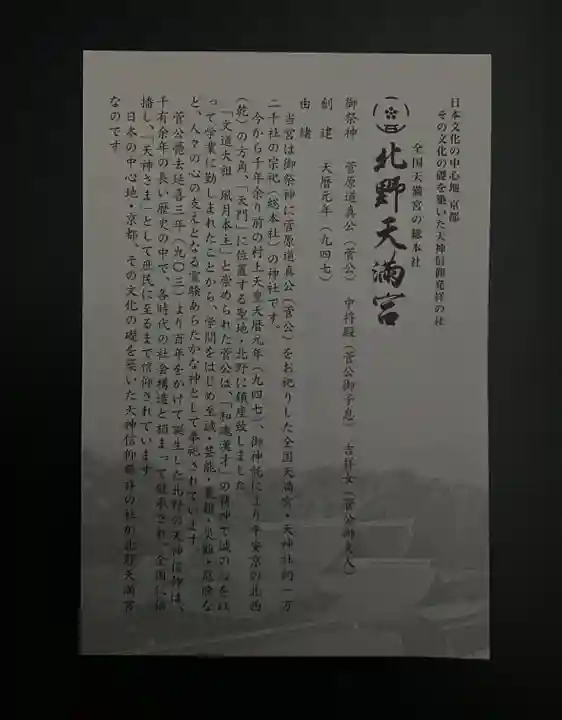 日本文化の中心地 京都
その文化の礎を築いた天神信仰発祥の社
全国天満宮の総本社
北野天満宮
御祭神 菅原道真公（菅公） 中将殿（菅公御子息） 吉祥女（菅公御夫人）
創建 天暦元年（九四七）
由緒
当宮は御祭神に菅原道真公（菅公）をお祀りした全国天満宮・天神社約一万
二千社の宗祀（総本社）の神社です。
今から千年余り前の村上天皇天暦元年（九四七）、御神託により平安京の北西
（乾）の方角、「天門」に位置する聖地・北野に鎮座致しました
「文道大祖 風月本主」と崇められた菅公は、「和魂漢才」の精神で誠の心を以
って学業に勤しまれたことから、学問をはじめ至誠・芸能・農耕・災難・厄除な
ど、人々の心の支えとなる霊験あらたかな神として奉祀されています
菅公薨去延喜三年（九〇三）より百年をかけて誕生した北野の天神信仰は、
千有余年の長い歴史の中で、各時代の社会構造と相まって継承され、全国に伝
播し、「天神さま」として庶民に至るまで信仰されています
日本の中心地・京都、その文化の礎を築いた天神信仰発祥の社が北野天満宮
なのです。